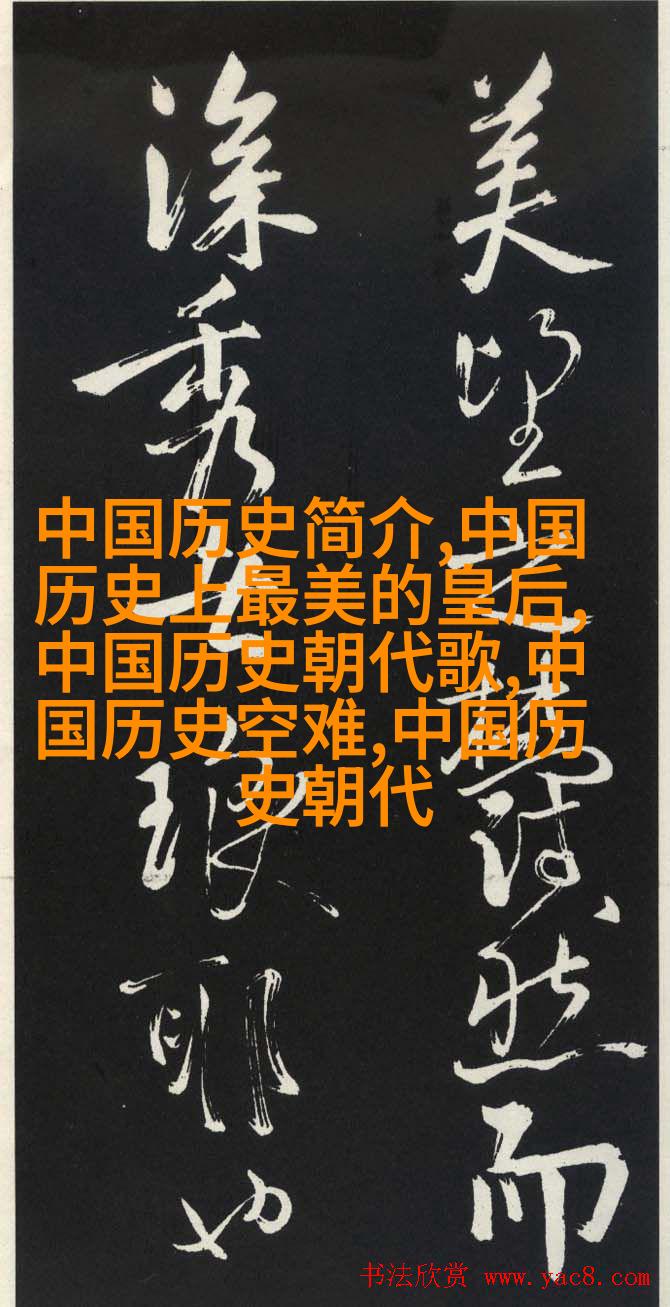 美望之蔚然而
深秀者琅耶也
中国历史简介,中国
历史上最美的皇后,
中国历史朝代歌,中
国历史空难,中国历
史朝代
书法欣赏 www.yac8.com